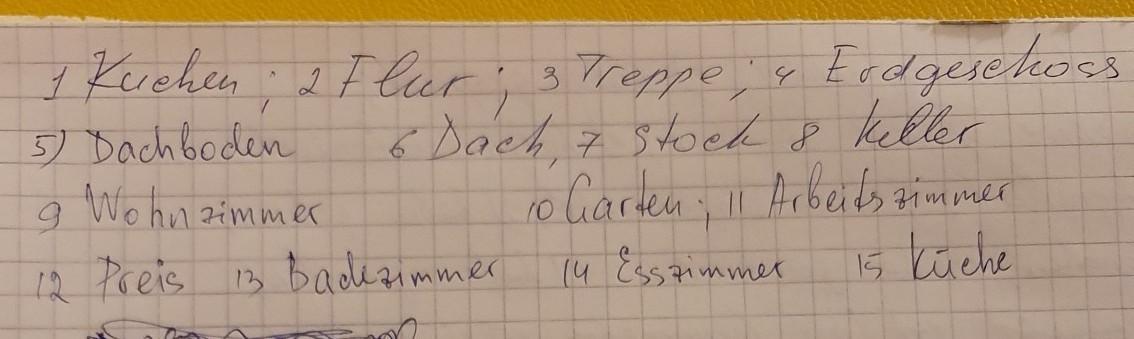 1 Kuchen; 2 Flur; 3 Treppe; 4 Erdgeschoss
5) Dachboden 6 Dach, 7 Stock 8 Keller
9 Wohnzimmer 10 Garten; 11 Arbeitszimmer
12 Preis 13 Badezimmer 14 Esszimmer 15 Küche